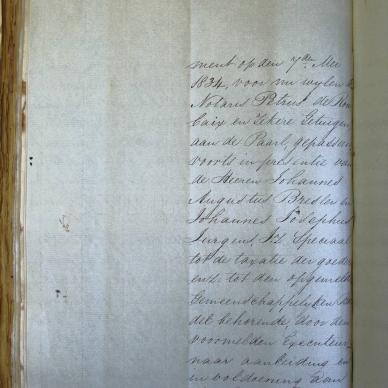 ment op den 7den Mei
1834, voor nu wylen
Notaris Petrus de
Caix en Zekere Getuigen
aan de Paarl, gepasseerd
voorts in presentie van
de Heeren Johannes
Augustus Bresler en
Johannes Josephus
Jurgens, Sz Speciaal
tot de taxatie der goede
enz: tot den opgemelde
Gemeenschappelyken
del behorende, door den
voormelden Executeur,
naar aanleiding en
in voldoening aan